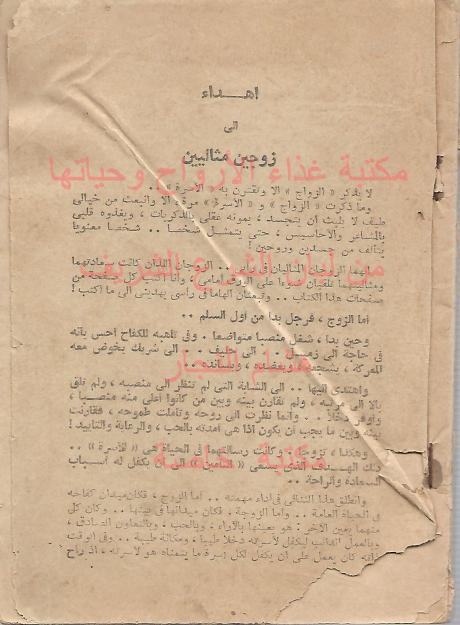 اهـــداء
الى
زوجين مثاليين
مكتبة غذاء الأرواح وحياتها
لا يذكر « الزواج » الا وتقترن به « الاسرة » ..
وما ذكرت « الزواج » و « الاسرة » مرة، الا وانبعث من خيالى
طيف لا يلبث أن يتجسد ، يمونه عقلى بالذكريات ، ويغذوه قلبى
بالمشاعر والأحاسيس ، حتى يتمثل شخصا .. شخصا معنويا
يتألف من جسدين وروحين !
الزوجان المثاليان فى .. الزوجان اللذان كانت سعادتهما
تلقيان ضوءا على الورق أمامى ، وأنا أكتب كل صفحة من
صفحات هذا الكتاب .. الهاما فى رأسى يهدينى الى ما أكتب !
من لبنان الشريف
أما الزوج ، فرجل بدأ من أول السلم ..
وحين بدأ ، شغل منصبا متواضعا . وفى للكفاح أحس بأنه
فى حاجة الى زميل .. الى حليف .. الى شريك يخوض معه
المعركة ، يشجعه ويعضده ، ويسانده ..
النجار
واهتدى اليها .. الى الشابة التى لم تنظر الى منصبه ، ولم تلق
بالا الى ، ولم تقارن بينه وبين من كانوا أعلى منه منصبا ،
وأوفر دخلا .. وانما نظرت الى روحه وتأملت طموحه ، فقارنت
بينه وبين ما يجب أن يكون اذا هى أمدته بالحب ، والرعاية والتأييد !
وهكذا ، تزوجا . وكانت رسالتهما فى الحياة هى « الأسرة » ..
ذلك الذى يسعى الى يكفل له أسباب
السعادة والراحة ..
مكتبة
وانطلق هذا الثنائى فى أداء مهمته .. أما الزوج ، فكان ميدان كفاحه
فى الحياة العامة .. وأما الزوجة ، فكان ميدانها فى بيتها .. وكان كل
منهما يعين الآخر : هو يعينها بالآراء ، وبالحب ، وبالتعاون الصادق ،
وبالعمل الدائب ليكفل لأسرته دخلا طيبا ، ومكانة طيبة .. وفى الوقت
ذاته كان يعمل على أن يكفل لكل أسرة ما يتمناه هو لأسرته ، اذ راح